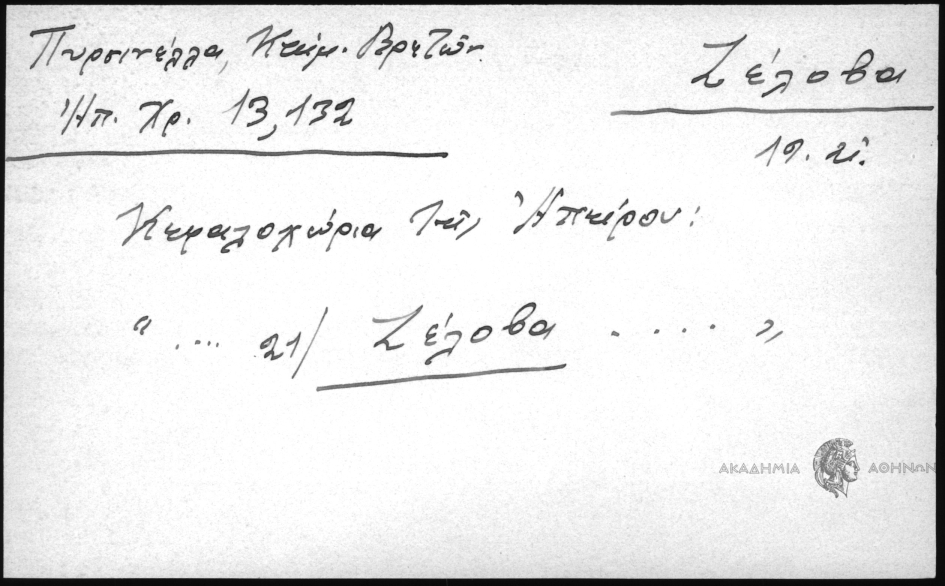 Πυρσινέλλα, Κείμ. Βρετῶν
Ζέλοβα
Ἠπ. Χρ. 13,132
19. αἰ.
Κεφαλοχώρια τῆς Ἠπείρου:
“ .... 21/ Ζέλοβα ..... ”
ΑΚΑΔΗΜΙΑ ΑΘΗΝΩΝ